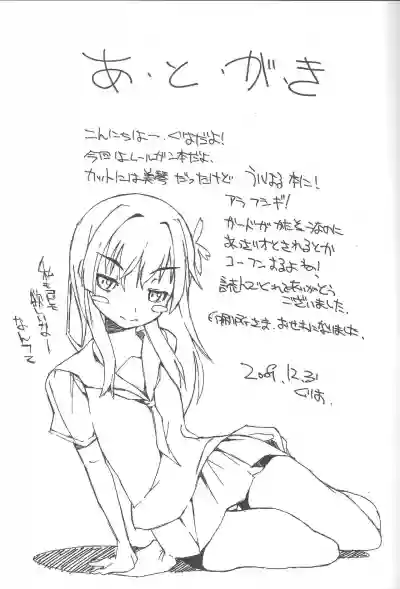 あ・と・がき
こんにちはー、ぐはだよ!
今回はレールガン本だよ、
カットには美琴だったけど ういはる本に!
アラフシギ!
ガードがかたそうなのに
あっさりオとされるとか
コーフンするよね!
読んでくれてありがとう
ございました。
印刷所さま、おせわになりました。
2009.12.31
ぐは。
なんつて